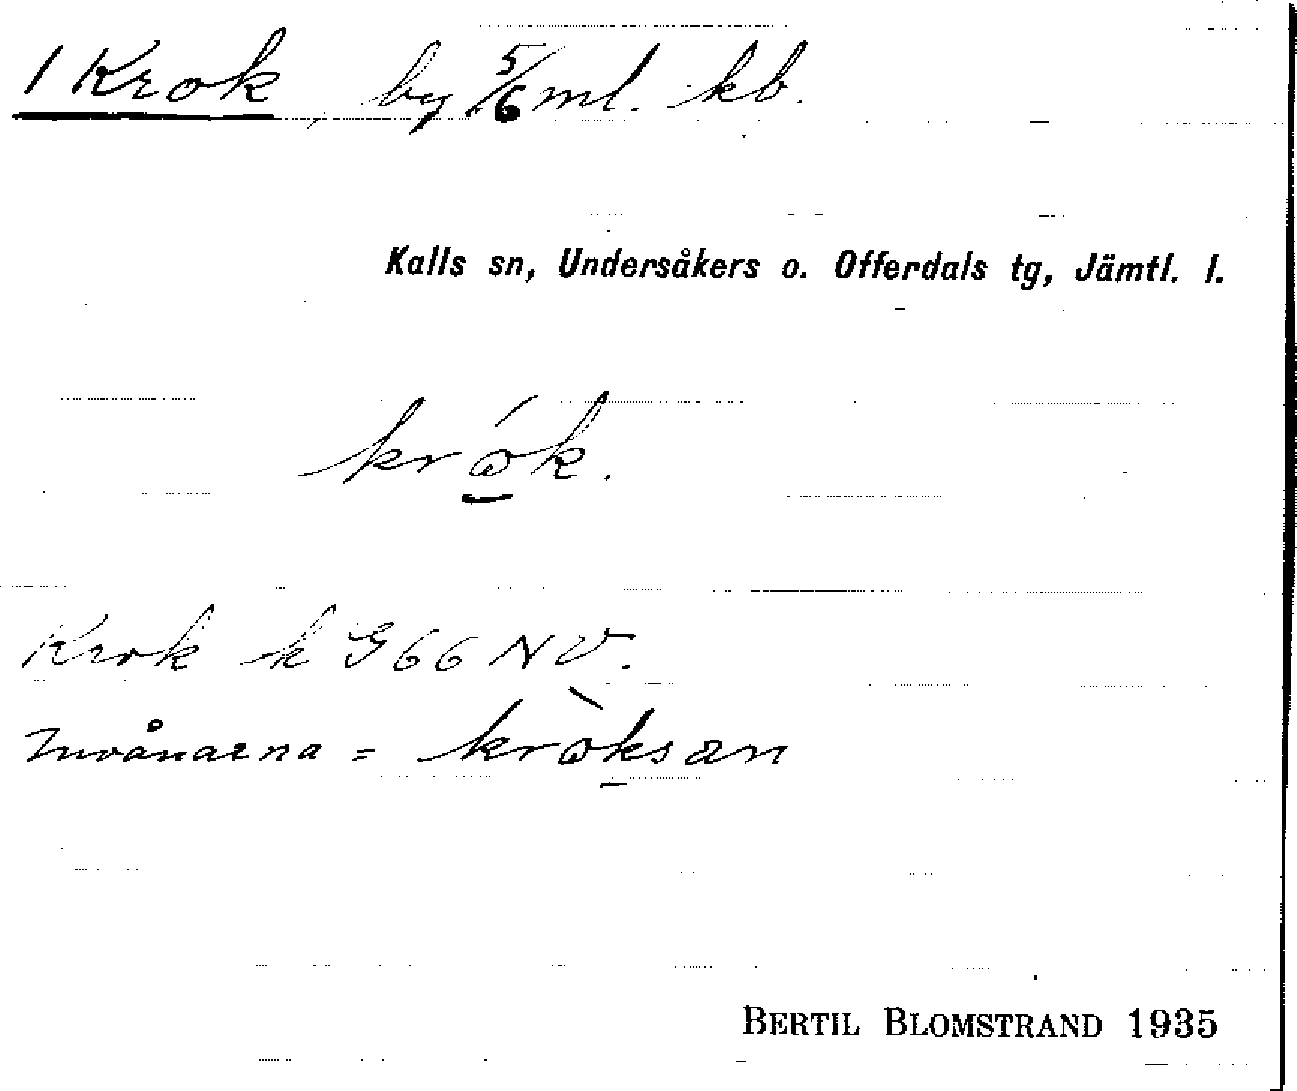 1 Krok, by 5/6 ml. kb.
Kalls sn, Undersåkers o. Offerdals tg, Jämtl. l.
krɷ́k.
Krok k G66 NV.
Invånarna = krɷ̀ksan
BERTIL BLOMSTRAND 1935